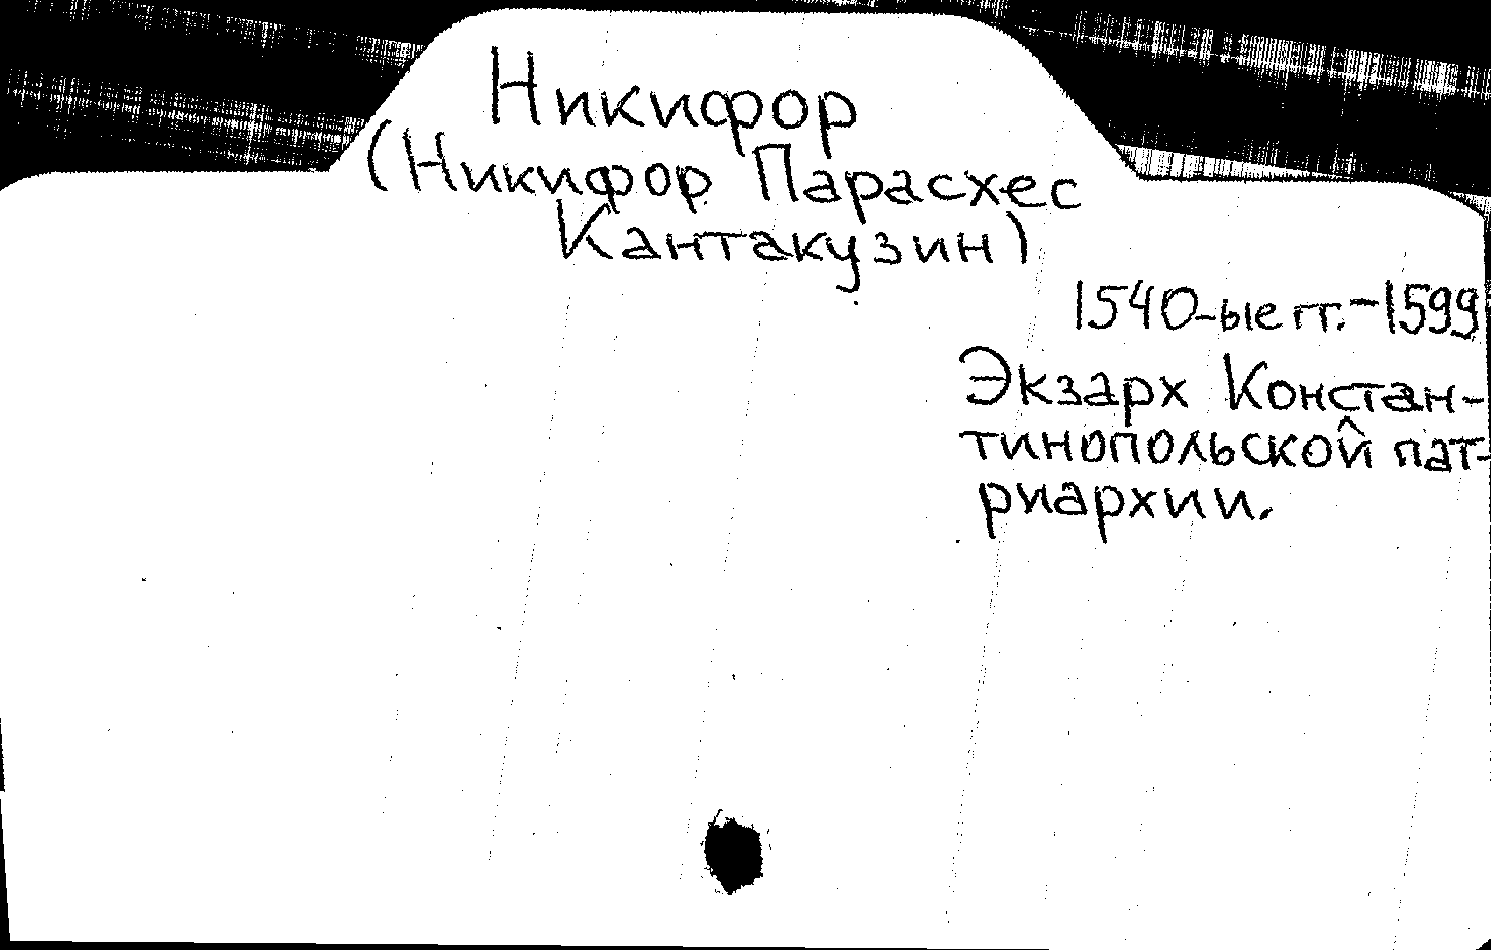 Никифор
(Никифор Парасхес
Кантакузин)
1540-ые гг.-1599
Экзарх Констан-
тинопольской пат-
риархии.